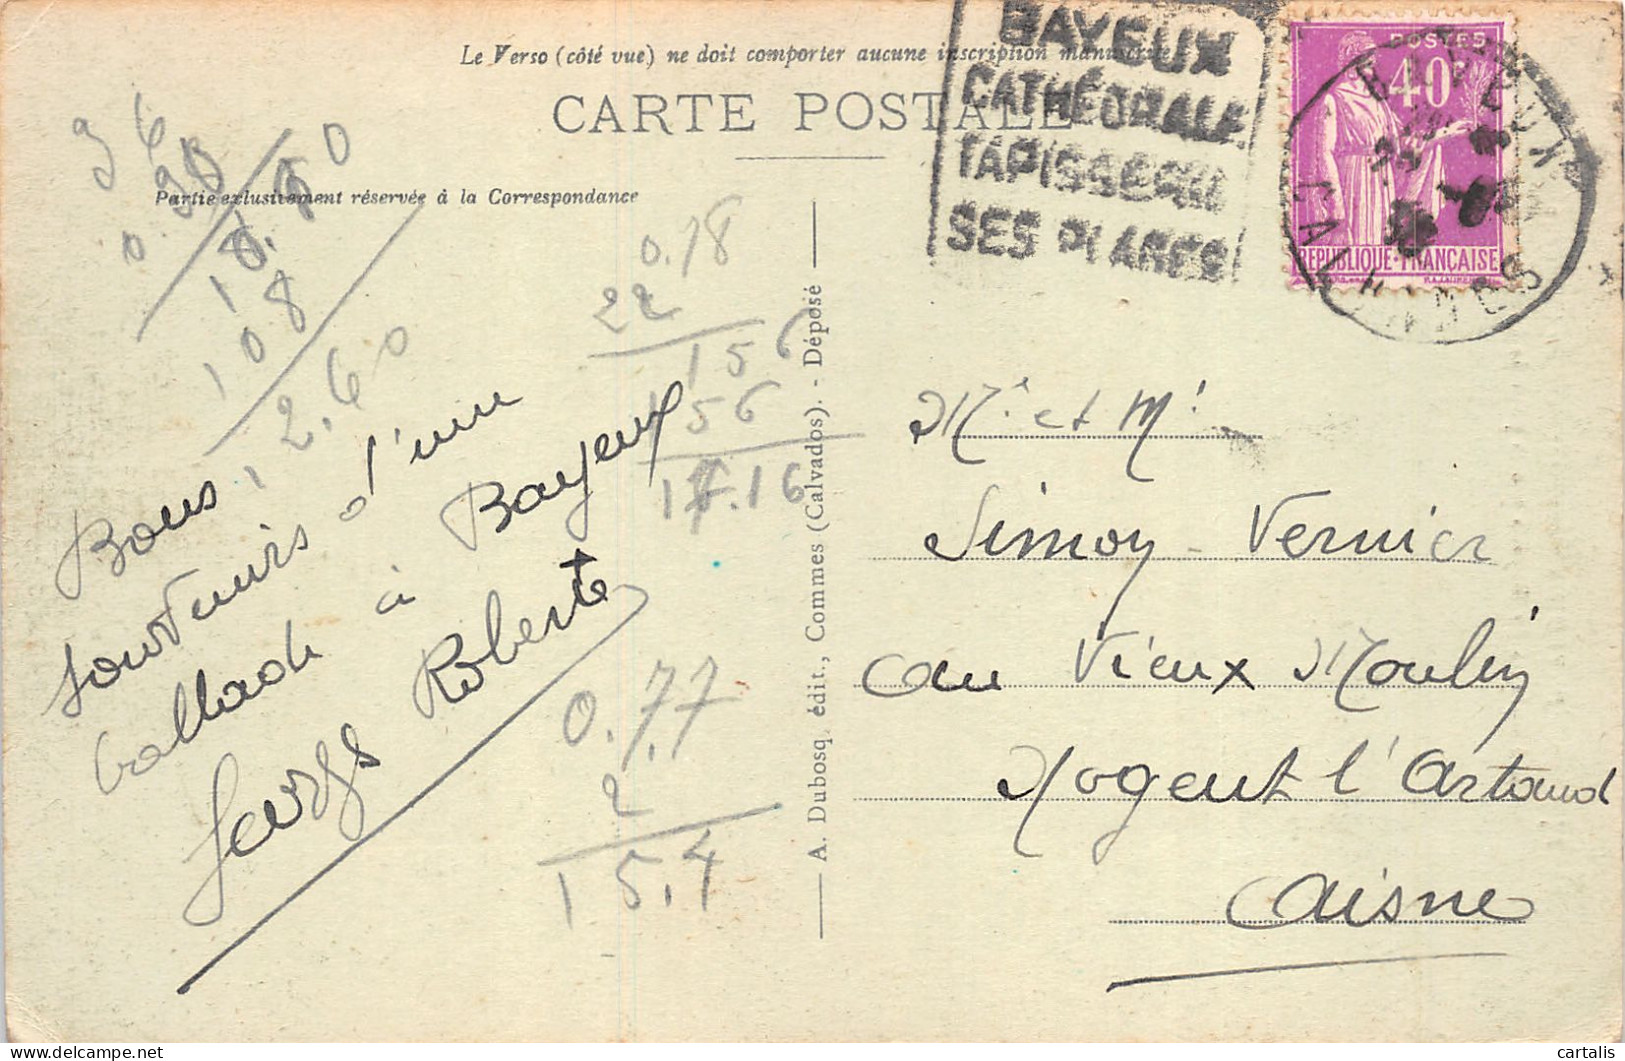 Le Verso (côté vue) ne doit comporter aucune inscription manuscrite
CARTE POSTALE
Partie exclusivement réservée à la Correspondance
BAYEUX
CATHÉDRALE
TAPISSERIE
SES PLAGES
POSTES
40c
REPUBLIQUE-FRANÇAISE
BAYEUX
CALVADOS
96
108
2.60
0.78
22
156
156
17.16
Bons
souvenirs d'une
ballade à Bayeux
Roberte
Georges
0.77
2
15.4
A. Dubosq, édit., Commes (Calvados). - Déposé
Mr et Mme
Simoy-Vernier
au Vieux Moulin
Nogent l'Artaud
Aisne
cartalis